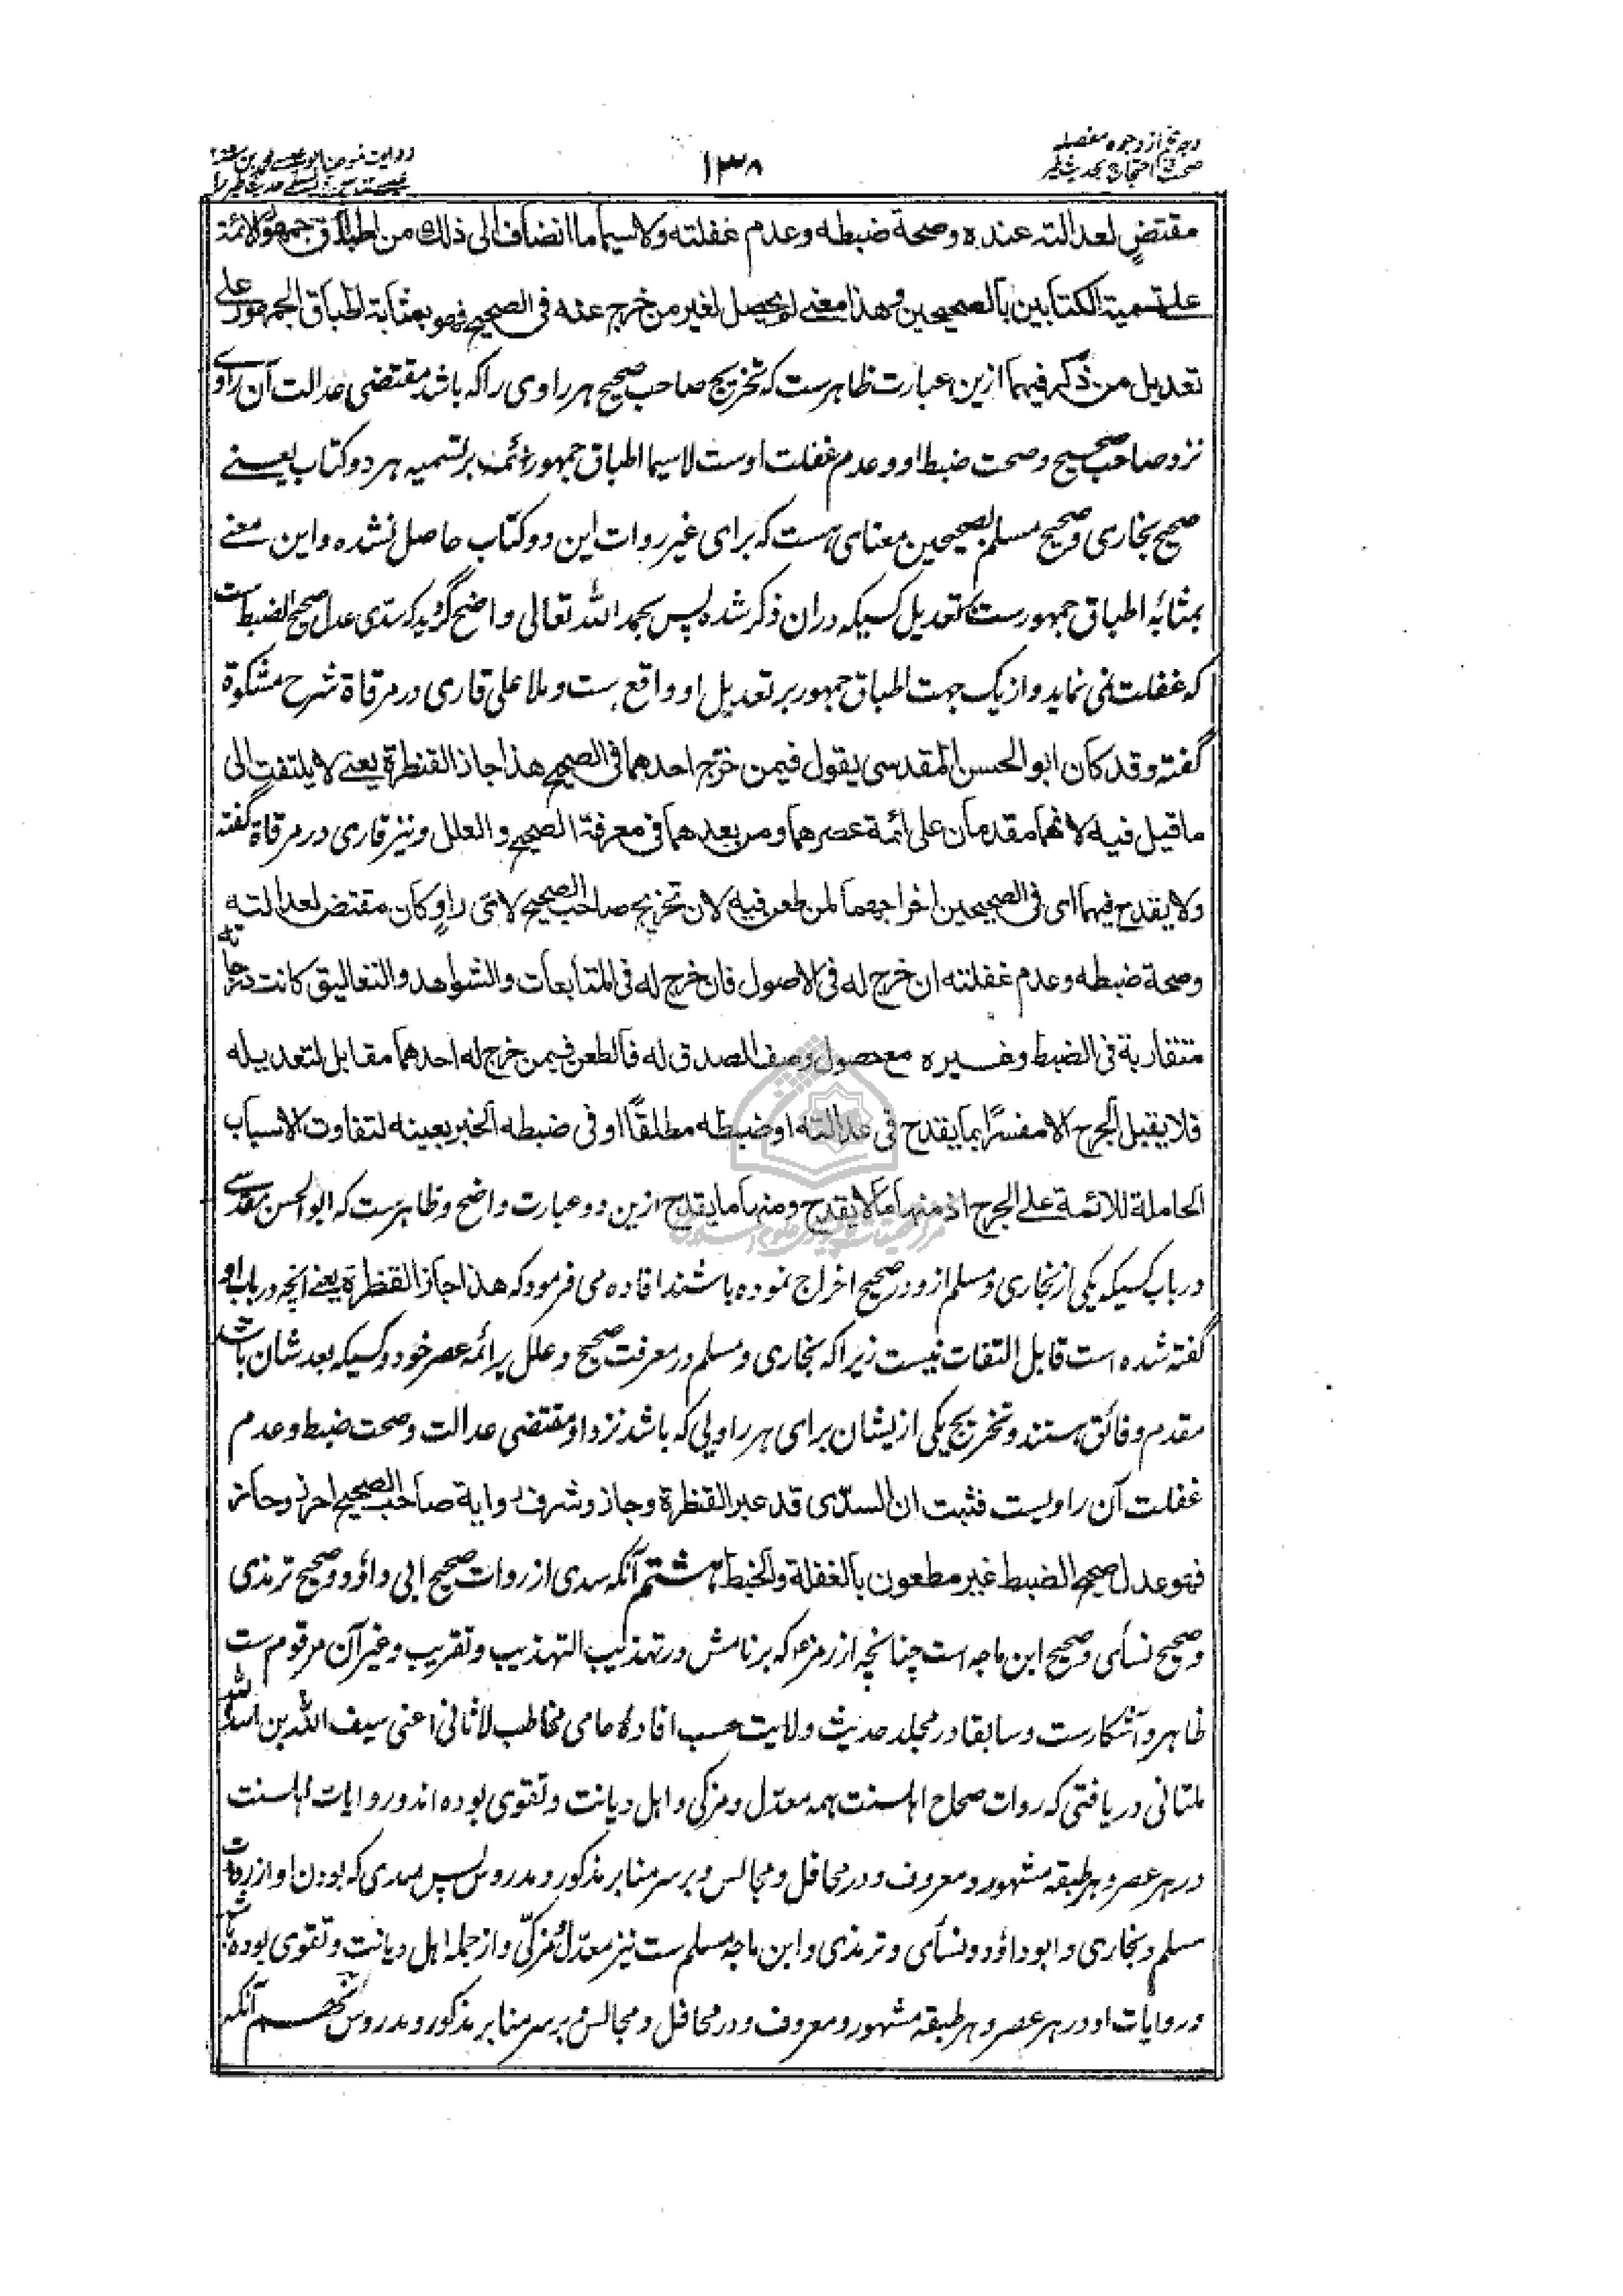 ۱۳۸
مقتضٍ لعدالته عنده وصحة ضبطه وعدم غفلته ولاسيما ما انضاف الى ذلك من اطباق جمهور الائمة
على تسمية الكتابين بالصحيحين وهذا معنى لم يحصل لغير من خرج عنه فى الصحيح فهو بمثابة اطباق الجمهور على
تعديل من ذكر فيهما ازین عبارت ظاهرست که تخریج صاحب صحیح هر راوی را که باشد مقتضی عدالت آن راوے
نزد صاحب صحیح وصحت ضبط او وعدم غفلت اوست لا سیما اطباق جمهور ائمه بر تسمیه هر دو کتاب یعنے
صحیح بخاری و صحیح مسلم بصحیحین معنای ست که برای غیر روات این دو کتاب حاصل نشده و این معنے
بمثابۂ اطباق جمهورست بر تعدیل کسیکه دران ذکر شده پس بحمد الله تعالی واضح گردید که سدی عدل صحیح الضبط ست
که غفلت نمی نماید و از یک جهت اطباق جمهور بر تعدیل او واقع ست و ملا علی قاری در مرقاة شرح مشکوة
گفته وقد كان ابو الحسن المقدسى يقول فيمن خرّج احدهما فى الصحيح هذا جاز القنطرة يعنے لا يلتفت الى
ما قيل فيه لانهما مقدمان على ائمة عصرهما ومن بعدهما فى معرفة الصحيح والعلل ونیز قاری در مرقاة گفته
ولا يقدح فيهما اى فى الصحيحين اخراجهما لمن طعن فيه لان تخريج صاحب الصحيح لاى راوٍ كان مقتض لعدالته
وصحة ضبطه وعدم غفلته ان خرج له فى الاصول فان خرج له فى المتابعات والشواهد والتعاليق كانت درجاته
متقاربة فى الضبط وغيره مع حصول وصف الصدق له فالطعن فيمن خرج له احدهما مقابل لتعديله
فلا يقبل الجرح الا مفسرًا بما يقدح فى عدالته او ضبطه مطلقًا او فى ضبطه الخبر بعينه لتفاوت الاسباب
الحاملة للائمة على الجرح اذ منها ما لا يقدح ومنها ما يقدح ازین دو عبارت واضح و ظاهرست که ابو الحسن مقدسے
در باب کسیکه یکی از بخاری و مسلم ازو در صحیح اخراج نموده باشند افاده می فرمود که هذا جاز القنطرة یعنے آنچه در باب او
گفته شده است قابل التفات نیست زیرا که بخاری و مسلم در معرفت صحیح و علل بر ائمه عصر خود و کسیکه بعد شان باشد
مقدم و فائق هستند و تخریج یکی ازیشان برای هر راویی که باشد نزد او مقتضی عدالت و صحت ضبط و عدم
غفلت آن راویست فثبت ان السدّى قد عبر القنطرة وجاز وشرف رواية صاحب الصحيح احرز وحاز
فهو عدل صحيح الضبط غير مطعون بالغفلة والخبط هشتم آنکه سدی از روات صحیح ابی داؤد و صحیح ترمذی
و صحیح نسائی و صحیح ابن ماجه است چنانچه از رمز ۴ که بر نامش در تهذیب التهذیب و تقریب و غیر آن مرقوم ست
ظاهر و آشکارست و سابقا در مجلد حدیث ولایت حسب افادۂ حامی مخاطب لاثانی اعنی سیف الله بن اسد الله
ملتانی دریافتی که روات صحاح اهلسنت همه معدّل و مزکی و اهل دیانت و تقوی بوده اند و روایات اهلسنت
در هر عصر و هر طبقه مشهور و معروف و در محافل و مجالس و بر سر منابر مذکور و مدروس پس سدی که بودن او از روات
مسلم و بخاری و ابو داؤد و نسائی و ترمذی و ابن ماجه مسلم ست نیز معدّل و مزکّی و از جمله اهل دیانت و تقوی بوده باشد
و روایات او در هر عصر و هر طبقه مشهور و معروف و در محافل و مجالس و بر سر منابر مذکور و مدروس نهم آنکه